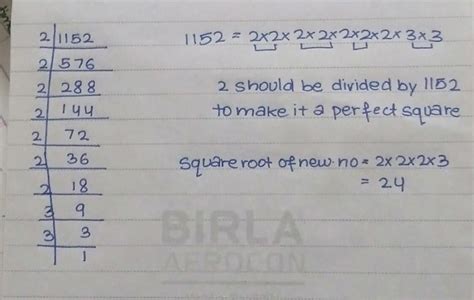 2 | 1152
2 | 576
2 | 288
2 | 144
2 | 72
2 | 36
2 | 18
3 | 9
3 | 3
1
1152 = 2×2×2×2×2×2×2×3×3
2 should be divided by 1152
to make it a perfect square
square root of new no = 2×2×2×3
= 24
BIRLA
AEROCON